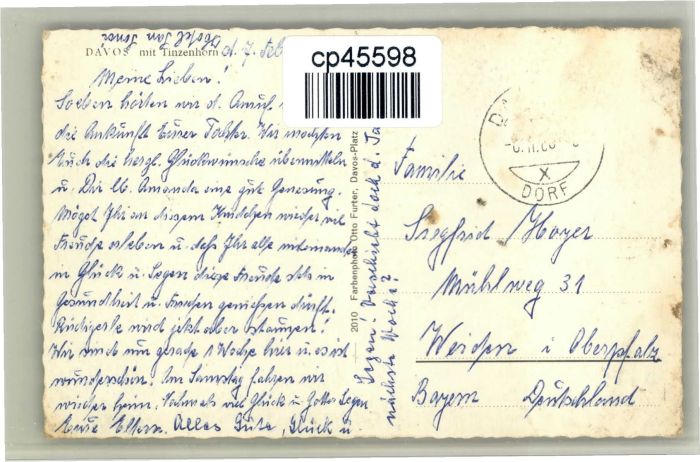 DAVOS mit Tinzenhorn
d. 7. Feb
cp45598
Meine Lieben!
Soeben hören wir d. Anruf
die Ankunft Eurer Tochter. Wir möchten
Euch die herzl. Glückwünsche übermitteln
u. Dir lb. Amanda eine gute Genesung.
Möget Ihr an diesem Kindchen wieder viel
Freude erleben u. daß Ihr alle miteinander
in Glück u. Segen diese Freude stets in
Gesundheit u. Frieden genießen dürft.
wird jetzt aber staunen!
Wir sind nun gerade 1 Woche hier u. es ist
wunderschön. Am Samstag fahren wir
wieder heim. Nochmals viel Glück u. Gottes Segen
Eure Eltern. Alles Gute, Glück u
Segen!
nächste Woche?
2010 Farbenphoto Otto Furter, Davos-Platz
DORF
X
Familie
Siegfried Hoyer
Mühlweg 31
Weiden i Oberpfalz
Bayern Deutschland